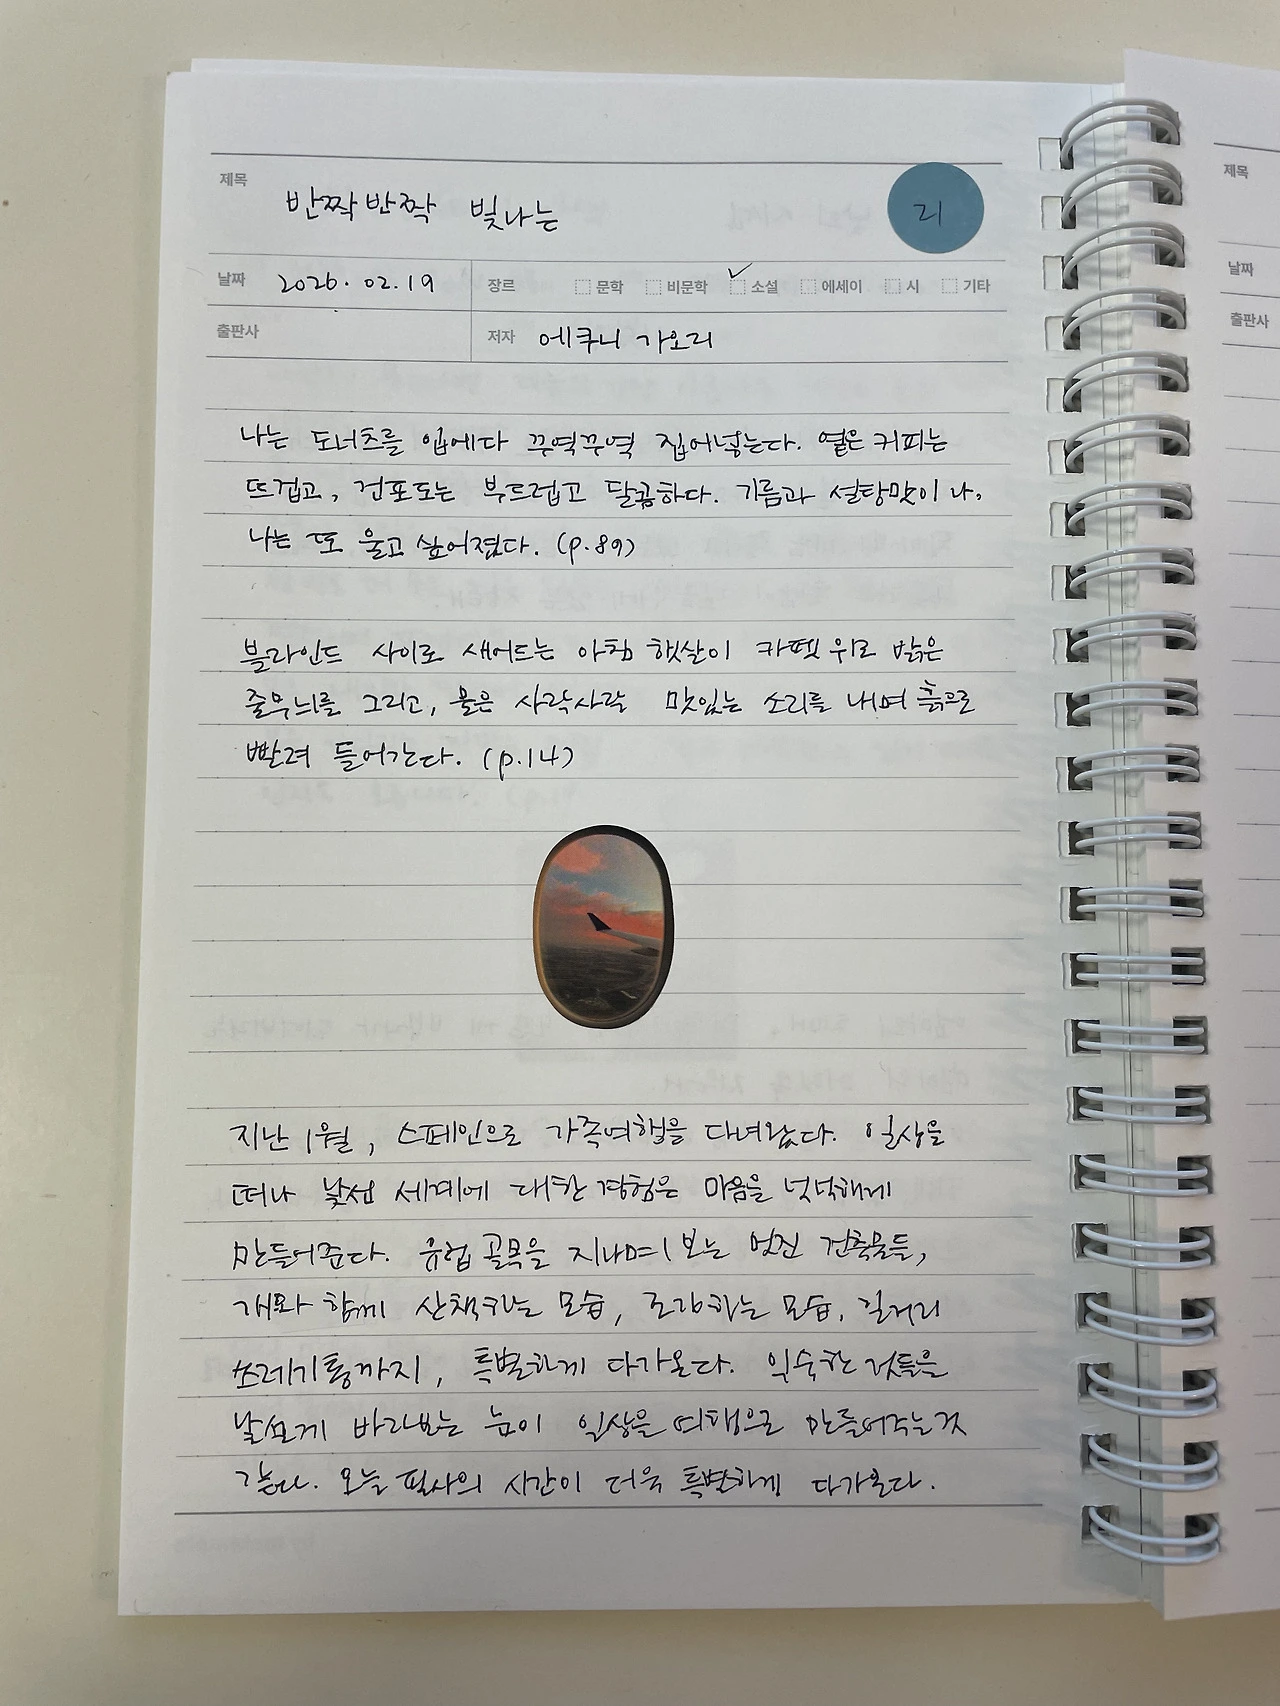 제목 반짝반짝 빛나는 리
날짜 2026.02.19 장르 문학 비문학 소설 에세이 시 기타
출판사 저자 에쿠니 가오리
나는 도너츠를 입에다 꾸역꾸역 집어넣는다. 옅은 커피는
뜨겁고, 건포도는 부드럽고 달콤하다. 기름과 설탕맛이 나,
나는 또 울고 싶어졌다. (p.89)
블라인드 사이로 새어드는 아침 햇살이 카펫 위로 밝은
줄무늬를 그리고, 물은 사락사락 맛있는 소리를 내며 흙으로
빨려 들어간다. (p.14)
지난 1월, 스페인으로 가족여행을 다녀왔다. 일상을
떠나 낯선 세계에 대한 경험은 마음을 넉넉하게
만들어준다. 유럽 골목을 지나며 보는 멋진 건축물들,
개와 함께 산책하는 모습, 조깅하는 모습, 길거리
쓰레기통까지, 특별하게 다가온다. 익숙한 것들을
낯설게 바라보는 눈이 일상을 여행으로 만들어주는 것
같다. 오늘 필사의 시간이 더욱 특별하게 다가온다.
제목
날짜
출판사